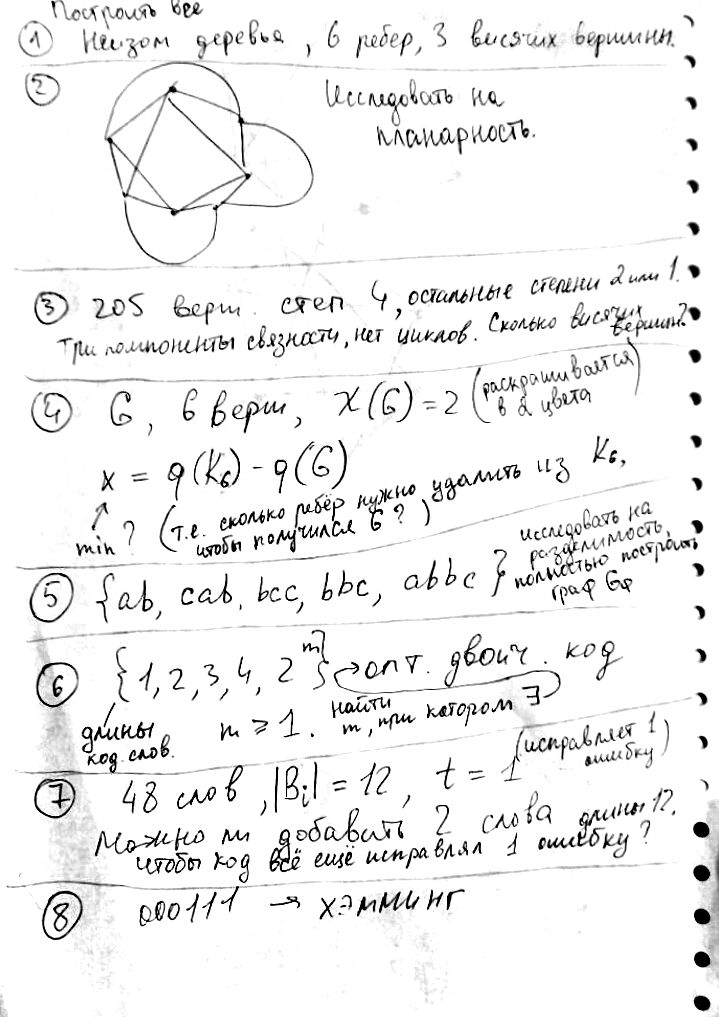 Построить все
① Неизом деревья, 6 ребер, 3 висячих вершины.
② Исследовать на
планарность.
③ 205 верш. степ 4, остальные степени 2 или 1.
Три компоненты связности, нет циклов. Сколько висячих
вершин?
④ G, 6 верш, χ(G) = 2 (раскрашивается
в 2 цвета)
x = q(K₆) - q(G)
↑
min? (т.е. сколько ребёр нужно удалить из K₆,
чтобы получился G?)
⑤ {ab, cab, bcc, bbc, abbc} исследовать на
разделимость,
полностью построить
граф Gφ
⑥ {1, 2, 3, 4, 2ᵐ} → опт. двоич. код
длины
код. слов.
m ⩾ 1. найти
m, при котором ∃
⑦ 48 слов, |Bᵢ| = 12, t = 1 (исправляет 1
ошибку)
Можно ли добавить 2 слова длины 12,
чтобы код всё ещё исправлял 1 ошибку?
⑧ 000111 → хэмминг